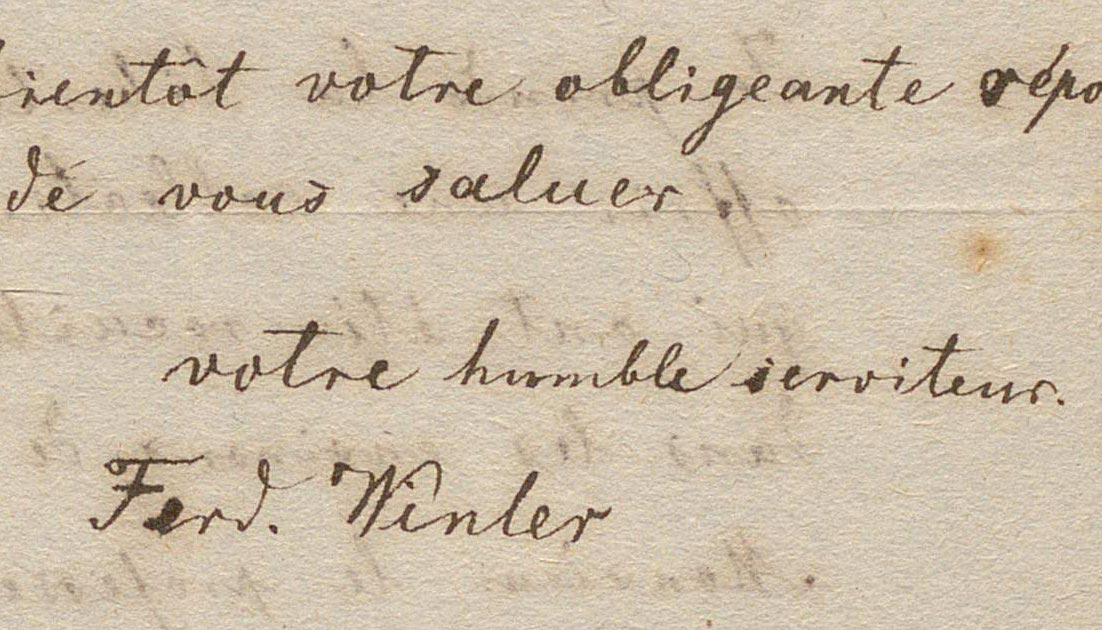 bientôt votre obligeante répo
de vous saluer.
votre humble serviteur.
Ferd. Winter